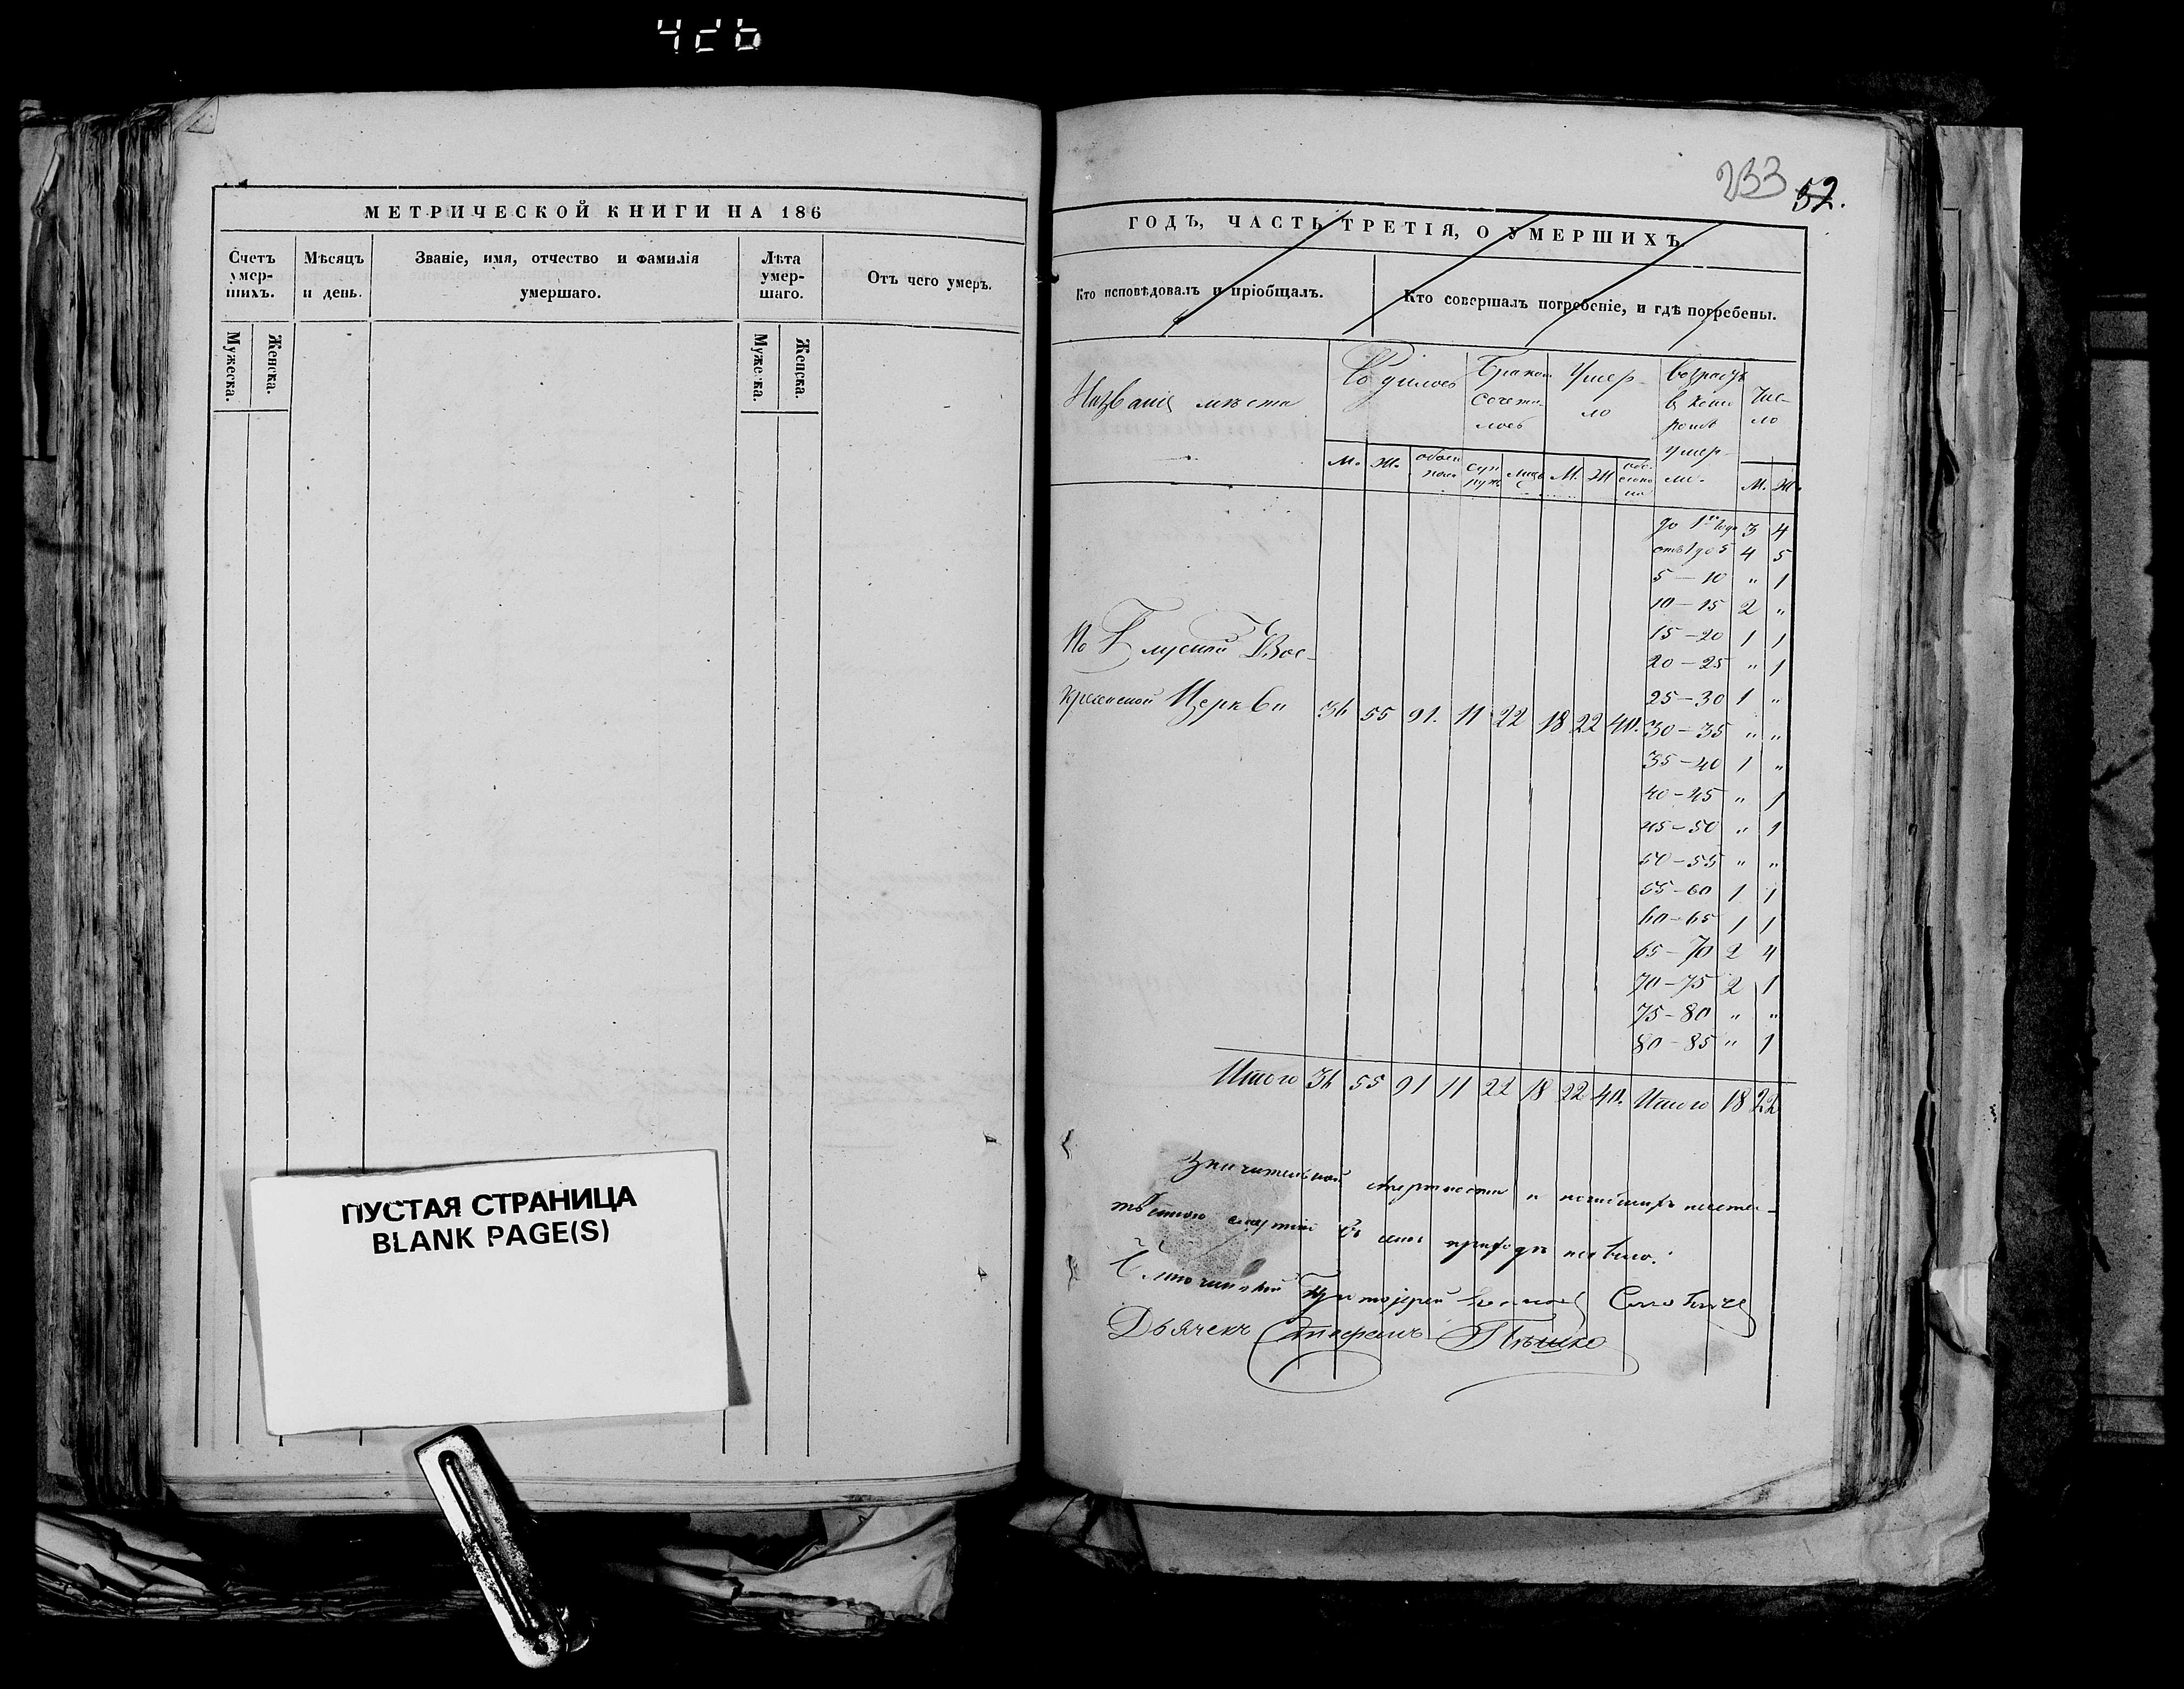 МЕТРИЧЕСКОЙ КНИГИ НА 186
Счетъ умер-шихъ.
Мѣсяцъ и день.
Званіе, имя, отчество и фамилія умершаго.
Лѣта умер-шаго.
Отъ чего умеръ.
Мужеска.
Женска.
Мужеска.
Женска.
ПУСТАЯ СТРАНИЦА
BLANK PAGE(S)
233 52.
ГОДЪ, ЧАСТЬ ТРЕТІЯ, О УМЕРШИХЪ.
Кто исповѣдовалъ и пріобщалъ.
Кто совершалъ погребеніе, и гдѣ погребены.
Названіе мѣста
Родилось
Бракомъ сочета-лось
Умер-ло
Возрастъ
умер-ли.
Чис-ло
М. Ж. обоего пола
М. Ж
М. Ж.
до 1го года 3 4
отъ 1 до 5 4 5
5 — 10 „ 1
10 — 15 2 „
15 — 20 1 1
20 — 25 „ 1
25 — 30 1 „
30 — 35 „ „
35 — 40 1 „
40 — 45 „ 1
45 — 50 „ 1
50 — 55 „ „
55 — 60 1 1
60 — 65 1 1
65 — 70 2 4
70 — 75 2 1
75 — 80 „ „
80 — 85 „ 1
По Глуской Вос-
кресенской Церкви 36 55 91. 11 22 18 22 40.
Итого 36 55 91 11 22 18 22 40. Итого 18 22
Значительной смертности и
смертій въ приходѣ не было.
Протоіерей
Дьячекъ Стефанъ